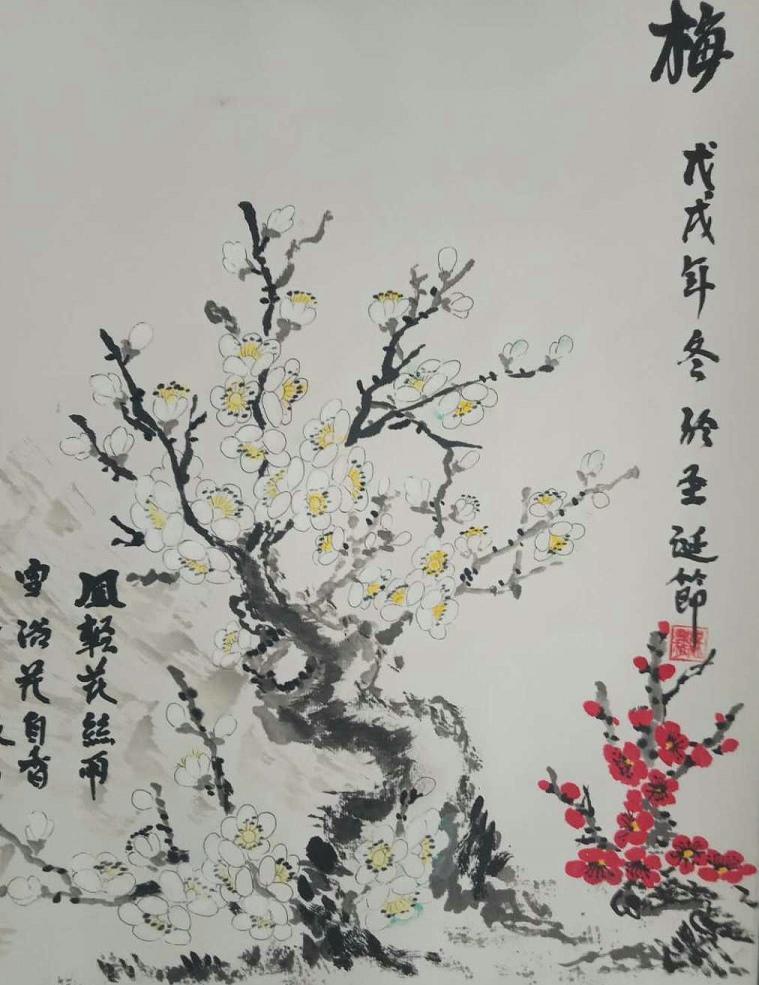 梅
戊戌年冬於圣诞節
風輕花絲雨
雪浴花自香